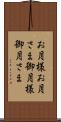 お月様お月
さま御月様
御月さま